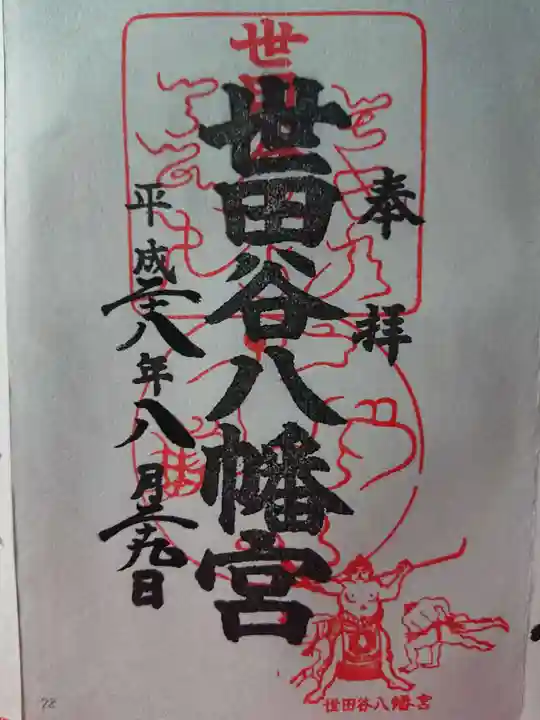 奉拝
世田谷八幡宮
平成二十八年八月二十九日
世田谷八幡宮